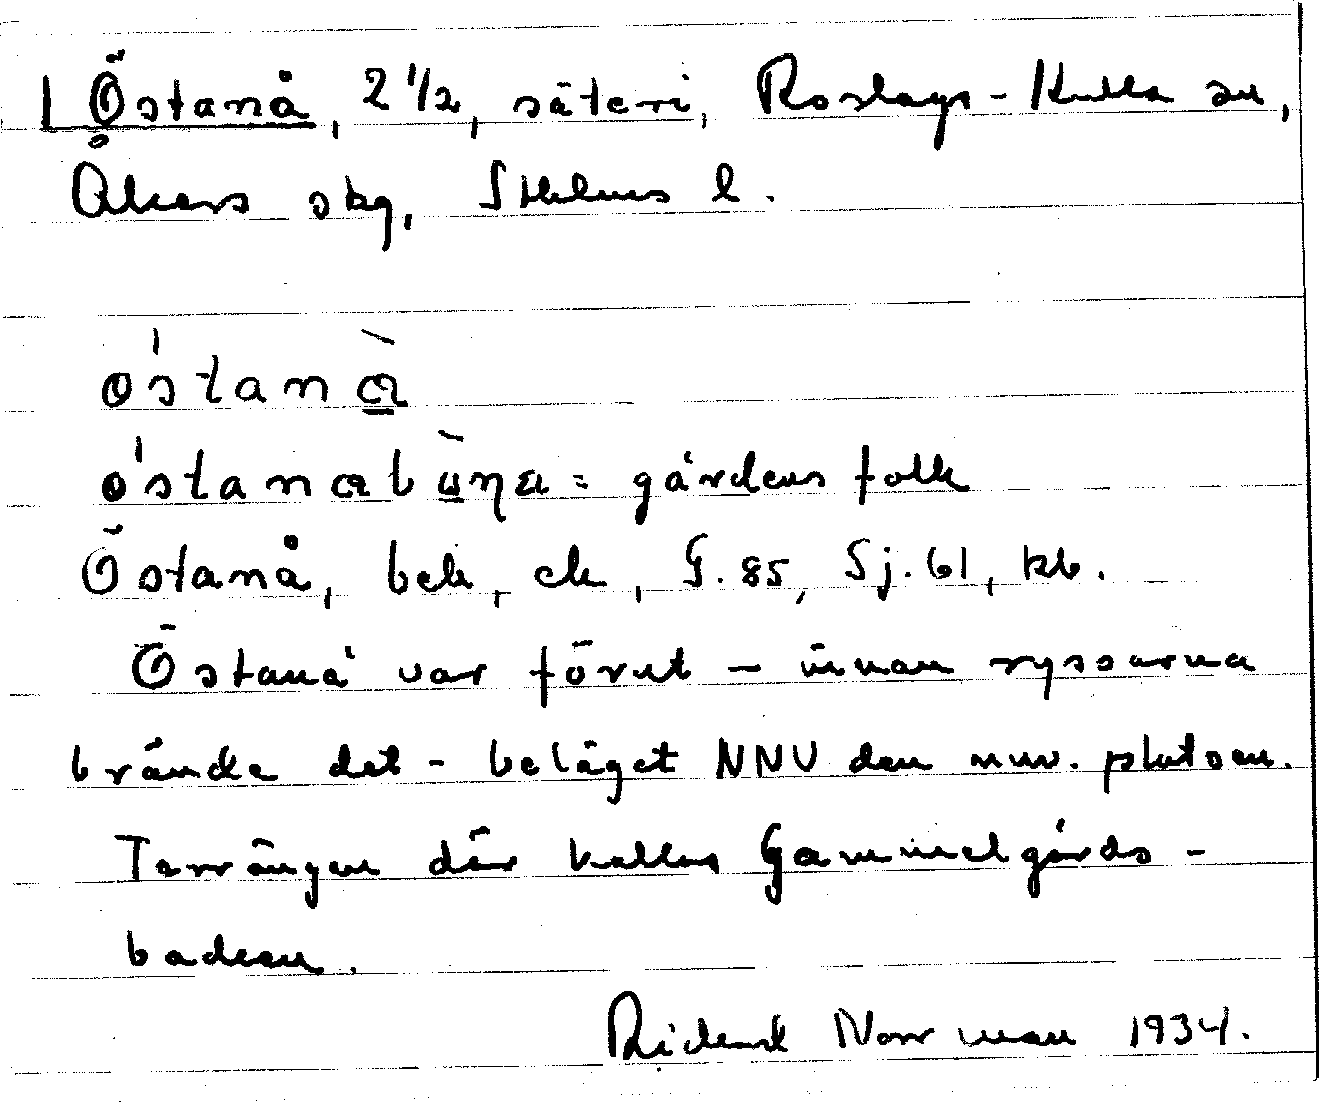 1 Östanå, 2 1/2, säteri, Roslags-Kulla sn,
Åkers skg, Sthlms l.
östanå
= gårdens folk
Östanå, bek, ek, G. 85, Sj. 61, kb.
Östanå var förut - innan ryssarna
brände det - beläget NNV den nuv. platsen.
Terrängen där kallas Gammelgårds-
backen.
Rickard Norrman 1934.